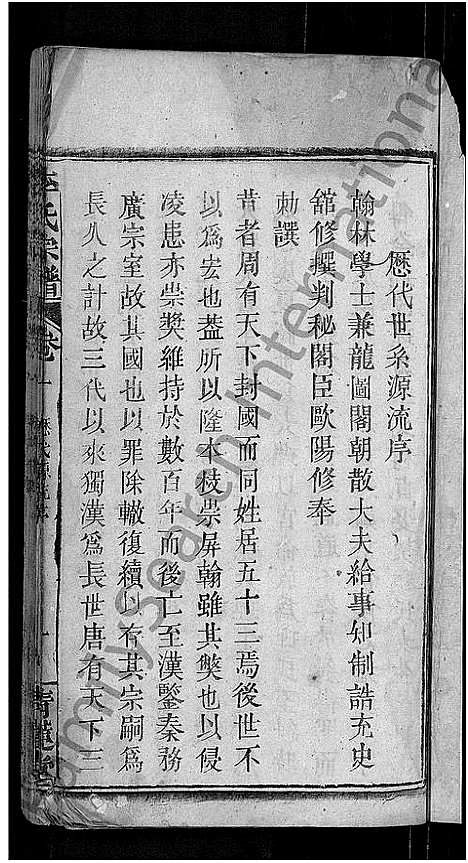 歷代世系源流序
翰林學士兼龍圖閣朝散大夫給事知制誥充史
舘修撰判秘閣臣歐陽修奉
勅譔
昔者周有天下封國而同姓居五十三焉後世不
以爲宏也葢所以隆本枝崇屏翰雖其獘也以侵
凌患亦崇奬維持於數百年而後亡至漢鑒秦務
廣宗室故其國也以罪除輙復續以存其宗嗣爲
長久之計故三代以來獨漢爲長世唐有天下三
氏宗譜
卷一
FamilySearch International